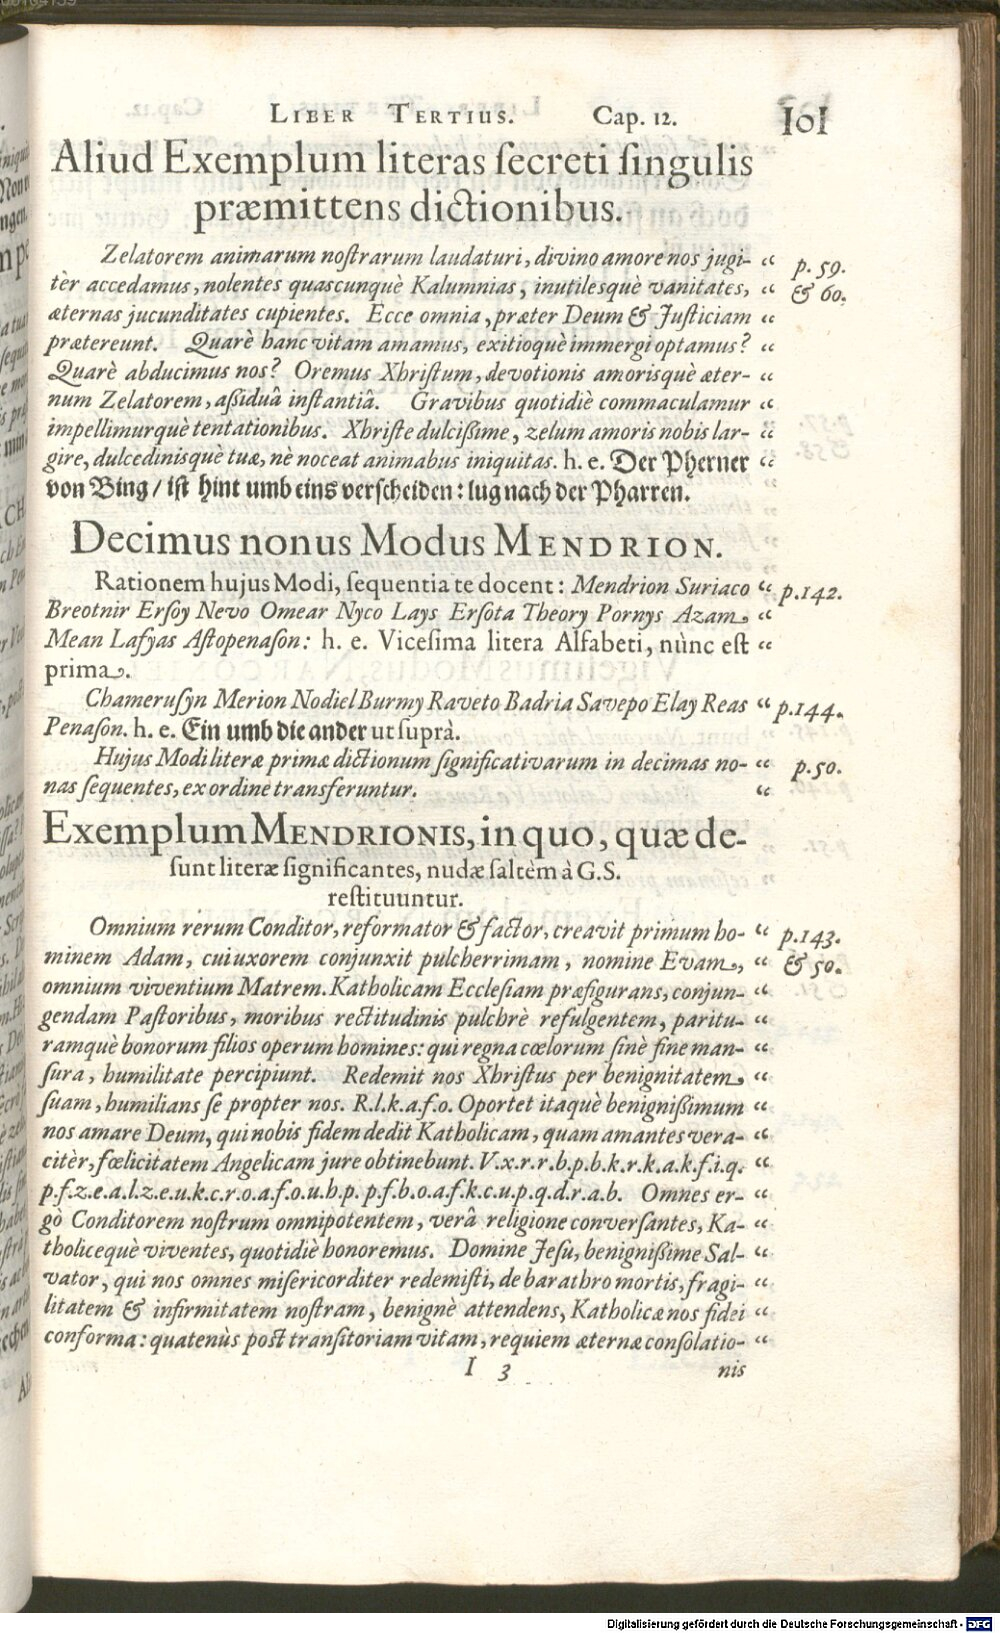 LIBER TERTIUS. Cap. 12. 101
Aliud Exemplum literas ſecreti ſingulis
præmittens dictionibus.
Zelatorem animarum noſtrarum laudaturi, divino amore nos jugi- “ p. 59.
tèr accedamus, nolentes quascunquè Kalumnias, inutilesquè vanitates, “ & 60.
æternas jucunditates cupientes. Ecce omnia, præter Deum & Juſticiam “
prætereunt. Quarè hanc vitam amamus, exitioquè immergi optamus? “
Quarè abducimus nos? Oremus Xhriſtum, devotionis amorisquè æter- “
num Zelatorem, aßiduâ inſtantiâ. Gravibus quotidiè commaculamur “
impellimurquè tentationibus. Xhriſte dulcißime, zelum amoris nobis lar- “
gire, dulcedinisquè tuæ, nè noceat animabus iniquitas. h. e. Der Pherner “
von Bing / iſt hint umb eins verſcheiden: lug nach der Pharren.
Decimus nonus Modus MENDRION.
Rationem hujus Modi, ſequentia te docent: Mendrion Suriaco “ p. 142.
Breotnir Erſoy Nevo Omear Nyco Lays Erſota Theory Pornys Azam “
Mean Laſyas Aſtopenaſon: h. e. Viceſima litera Alfabeti, nùnc eſt “
prima.
Chameruſyn Merion Nodiel Burmy Raveto Badria Savepo Elay Reas “ p. 144.
Penaſon. h. e. Ein umb die ander ut ſuprà.
Hujus Modi literæ primæ dictionum ſignificativarum in decimas no- “ p. 50.
nas ſequentes, ex ordine transferuntur. “
Exemplum MENDRIONIS, in quo, quæ de-
ſunt literæ ſignificantes, nudæ ſaltèm à G.S.
reſtituuntur.
Omnium rerum Conditor, reformator & factor, creavit primum ho- “ p. 143.
minem Adam, cui uxorem conjunxit pulcherrimam, nomine Evam, “ & 50.
omnium viventium Matrem. Katholicam Eccleſiam præfigurans, conjun- “
gendam Paſtoribus, moribus rectitudinis pulchrè refulgentem, paritu- “
ramquè bonorum filios operum homines: qui regna cœlorum ſinè fine man- “
ſura, humilitate percipiunt. Redemit nos Xhriſtus per benignitatem “
ſuam, humilians ſe propter nos. R.l.k.a.f.o. Oportet itaquè benignißimum “
nos amare Deum, qui nobis fidem dedit Katholicam, quam amantes vera- “
citèr, fœlicitatem Angelicam jure obtinebunt. V.x.r.r.b.p.b.k.r.k.a.k.f.i.q. “
p.f.z.e.a.l.z.e.u.k.c.r.o.a.f.o.u.h.p. p.f.b.o.a.f.k.c.u.p.q.d.r.a.b. Omnes er- “
gò Conditorem noſtrum omnipotentem, verâ religione converſantes, Ka- “
tholicequè viventes, quotidiè honoremus. Domine Jeſu, benignißime Sal- “
vator, qui nos omnes miſericorditer redemiſti, de barathro mortis, fragi- “
litatem & infirmitatem noſtram, benignè attendens, Katholicæ nos fidei “
conforma: quatenùs poſt tranſitoriam vitam, requiem æternæ conſolatio- “
I 3 nis
Digitalisierung gefördert durch die Deutsche Forschungsgemeinschaft - DFG